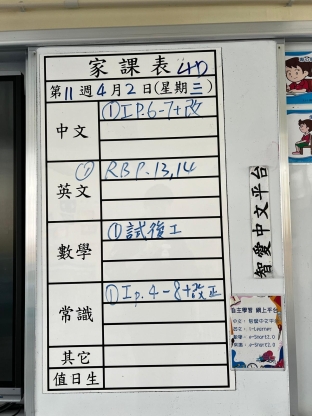 家課表 4D
第11週4月2日(星期三)
中文 ①I P.6-7+改
英文 ① RB P.13,14
數學 ①試後工
常識 ①I p.4-8+改正
其它
值日生
智愛中文平台
自主學習 網上平台
i-Learner
e-Smart2.0
e-Smart2.0